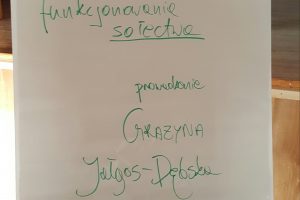 funkcjonowania
sołectwa
prowadzenie
GRAŻYNA
Jałgos-Dębska